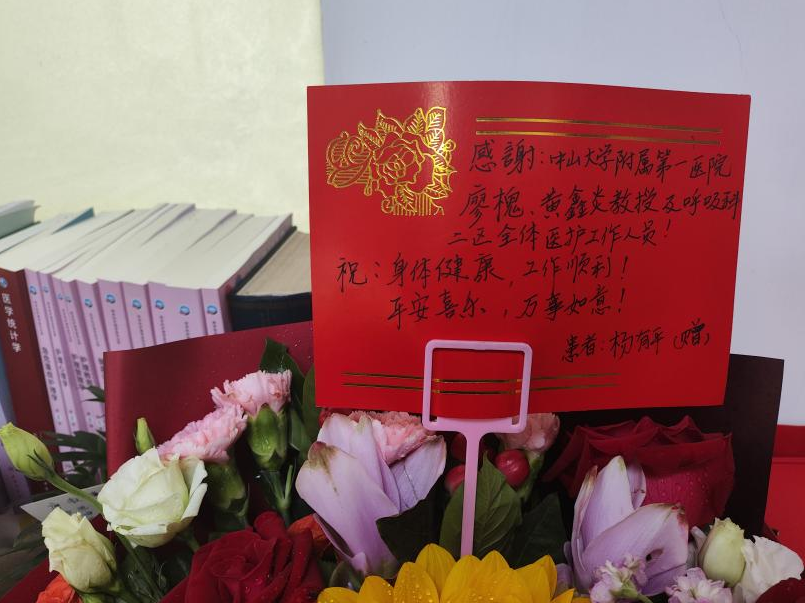 感謝:中山大学附属第一医院
廖槐、黄鑫炎教授及呼吸科
二区全体医护工作人员!
祝:身体健康,工作顺利!
平安喜乐,万事如意!
患者:杨有平(赠)
医学统计学